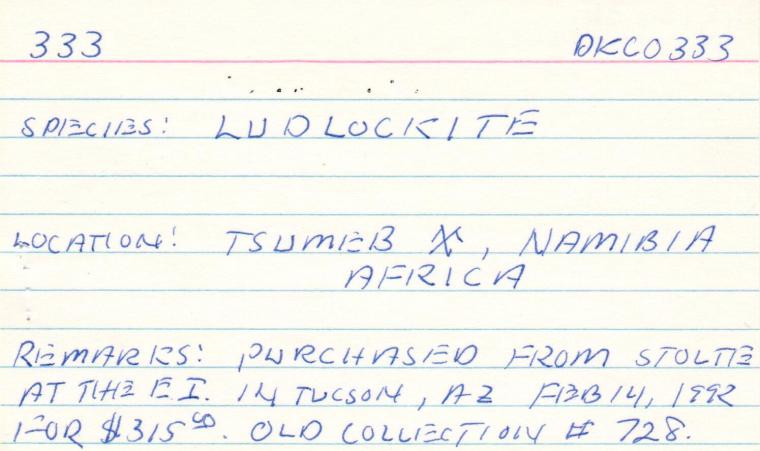 333 DKCO333
SPECIES: LUDLOCKITE
LOCATION: TSUMEB X, NAMIBIA
AFRICA
REMARKS: PURCHASED FROM STOLTE
AT THE E.I. IN TUCSON, AZ FEB 14, 1992
FOR $315⁰⁰. OLD COLLECTION # 728.